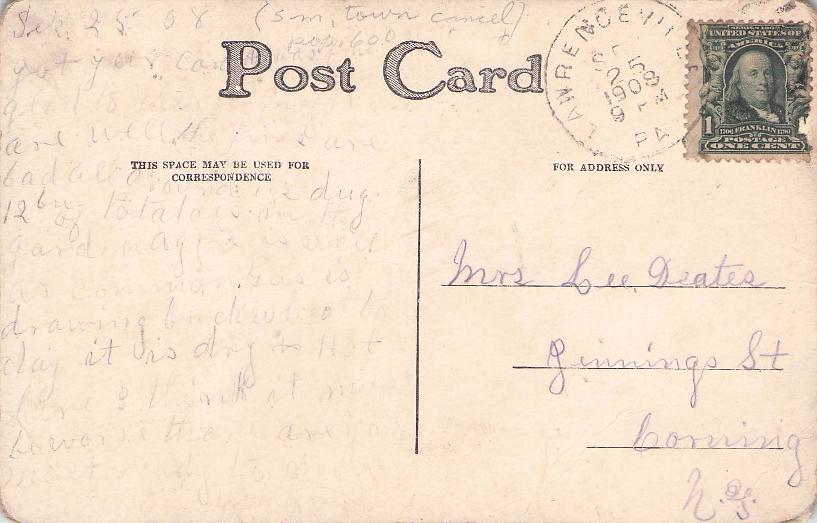 Sep 25 08 (sm, town cancel)
pop. 600
Post Card
LAWRENCEVILLE
SEP
25
1908
PM
PA
SERIES 1902
UNITED STATES OF
AMERICA
1
1706 FRANKLIN 1790
POSTAGE
ONE CENT
THIS SPACE MAY BE USED FOR
CORRESPONDENCE
FOR ADDRESS ONLY
got your card
glad to
are well the fires are
bad all around us dug
12 bu of Potatoes in the
garden is well
as common Gus is
drawing buckwheat to
day it is dry & Hot
here I think it must
be worse than are you
most ready to
Mrs Lee Deates
Jennings St
Corning
N. Y.